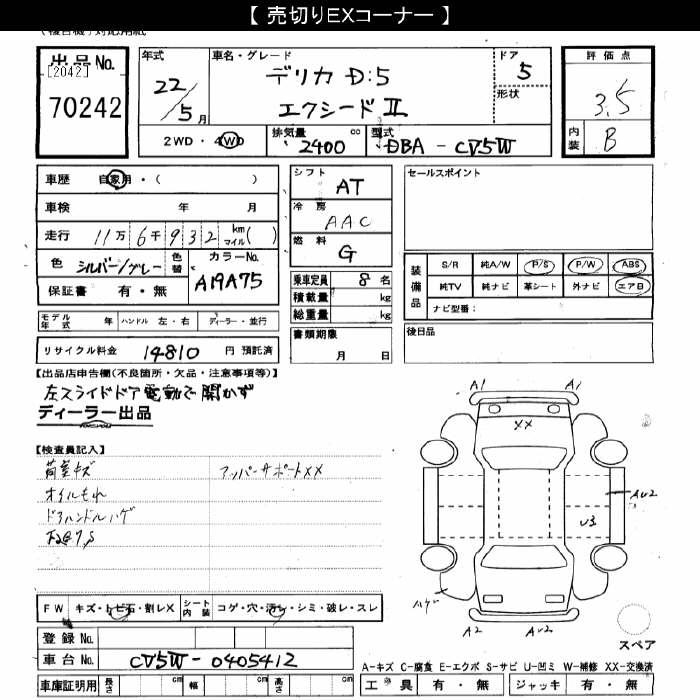 【 売切りEXコーナー 】
出品No.
[2042]
70242
年式
22/5月
車名・グレード
デリカ D:5
エクシードⅡ
ドア
5
形状
評価点
3.5
内装
B
2WD・4WD
排気量
2400 cc
型式
DBA - CV5W
車歴 自家用・( )
車検 年 月
走行 11万6千932 km マイル( )
色 シルバー/グレー 色替
カラーNo.
A19A75
保証書 有・無
シフト
AT
冷房
AAC
燃料
G
乗車定員 8 名
積載量 kg
総重量 kg
書類期限
月 日
セールスポイント
装備品
S/R 純A/W P/S P/W ABS
純TV 純ナビ 革シート 外ナビ エアB
ナビ型番:
後日品
モデル年式 年 ハンドル 左・右 ディーラー・並行
リサイクル料金 14810 円 預託済
【出品店申告欄(不良箇所・欠品・注意事項等)】
左スライドドア電動で開かず
ディーラー出品
【検査員記入】
荷室キズ アッパーサポートXX
オイルもれ
ドアハンドルハゲ
A1 A1
XX
AU2
U3
ハゲ
A2 AU2
スペア
FW キズ・トビ石・割レX シート内装 コゲ・穴・汚レ・シミ・破レ・スレ
登録No.
車台No. CV5W-0405412
車庫証明用 長さ cm 幅 cm 高さ cm
A-キズ C-腐食 E-エクボ S-サビ U-凹ミ W-補修 XX-交換済
工具 有・無 ジャッキ 有・無